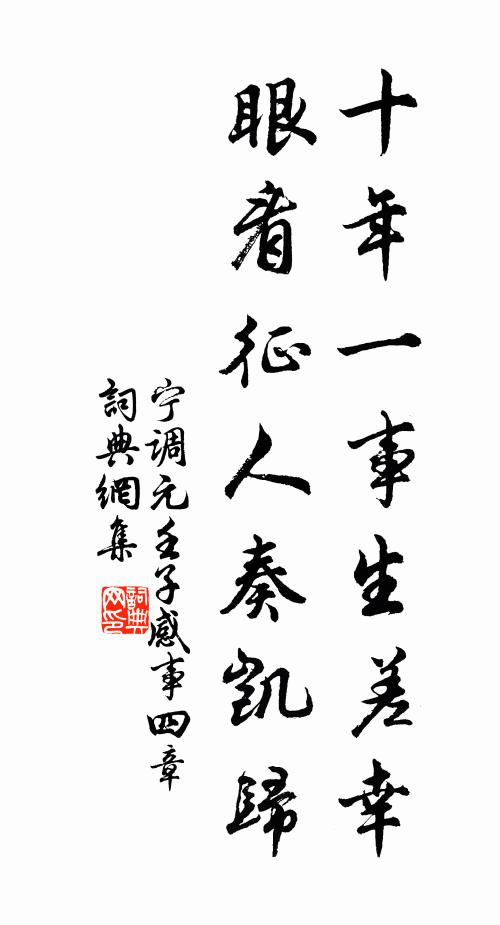 十年一事生差幸
眼看征人奏凱歸
宁调元壬子感事四章
詞典網集
詞典
网印